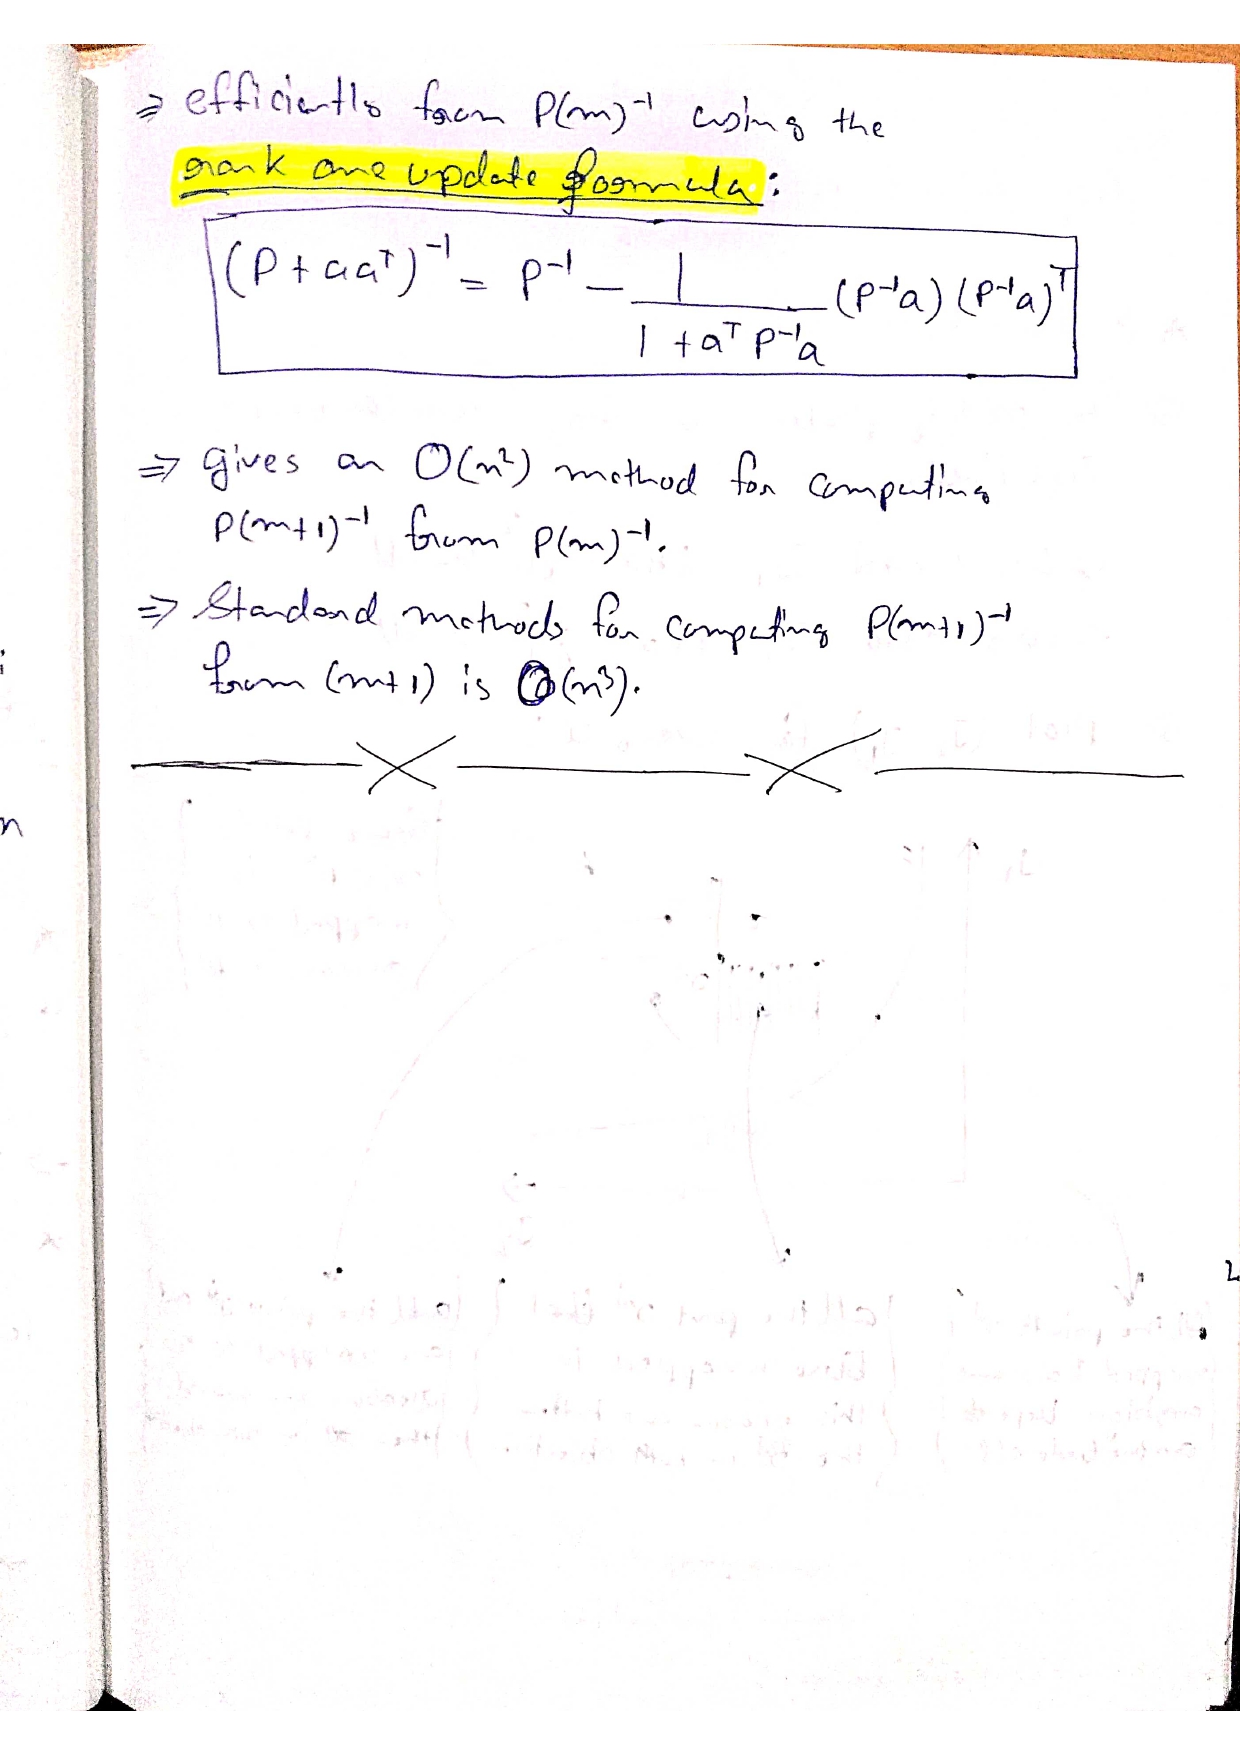 ⇒ efficiently from P(m)⁻¹ using the
rank one update formula:
(P + aaᵀ)⁻¹ = P⁻¹ − 1/(1 + aᵀP⁻¹a) (P⁻¹a)(P⁻¹a)ᵀ
⇒ gives an O(n²) method for computing
P(m+1)⁻¹ from P(m)⁻¹.
⇒ Standard methods for computing P(m+1)⁻¹
from (m+1) is O(n³).